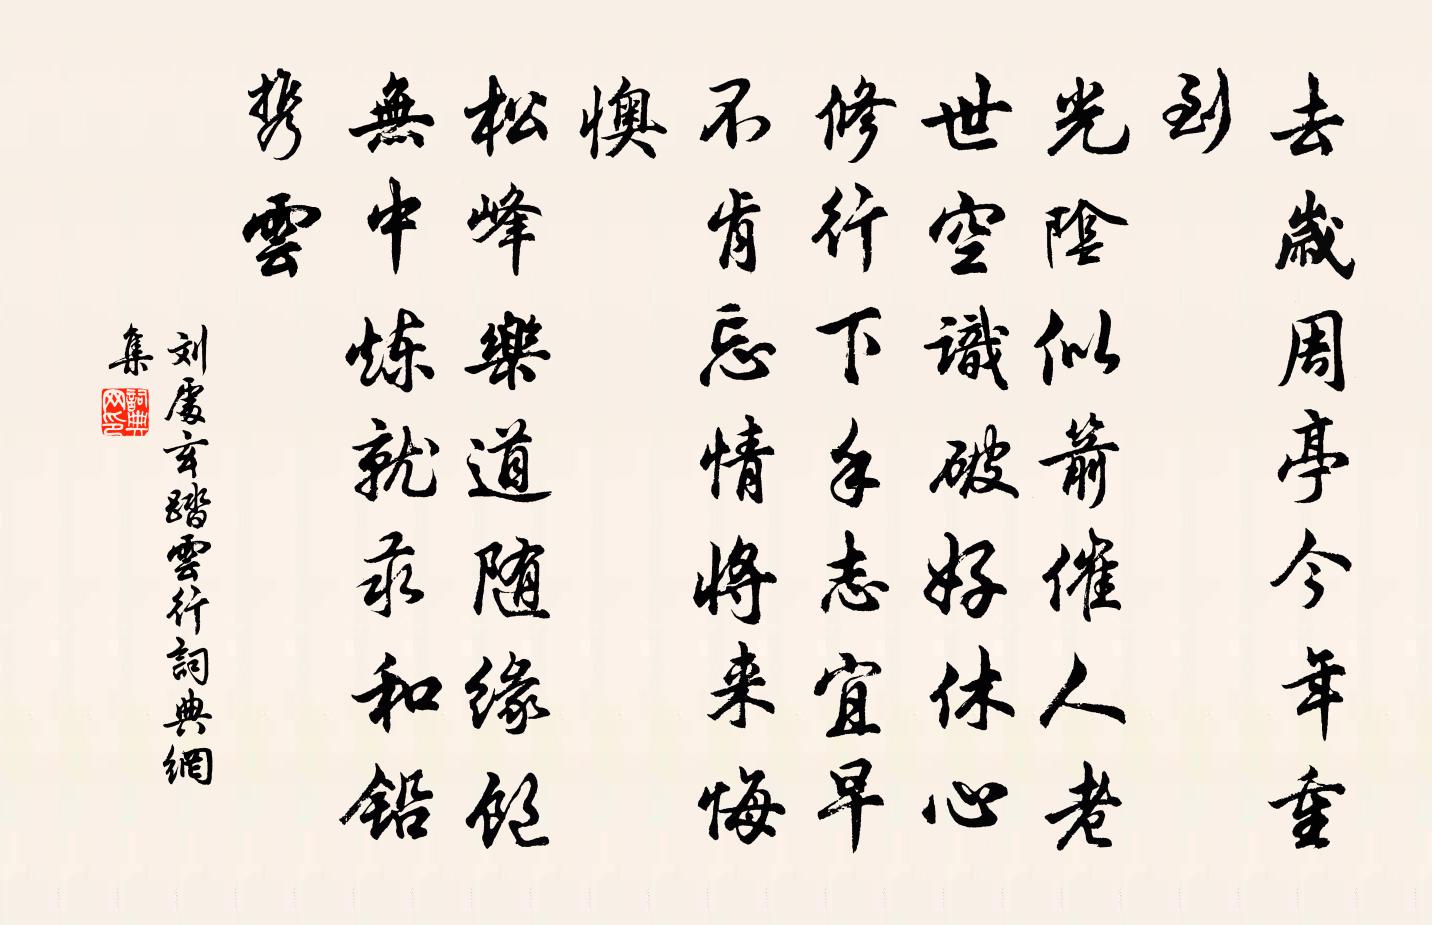 去歲周亭今年重
到
光陰似箭催人老
世空識破好休心
修行下手志宜早
不肯忘情將来悔
懊
松峰樂道随緣飽
無中炼就汞和鉛
携雲
刘處玄踏雲行詞典網
集
詞典
网印